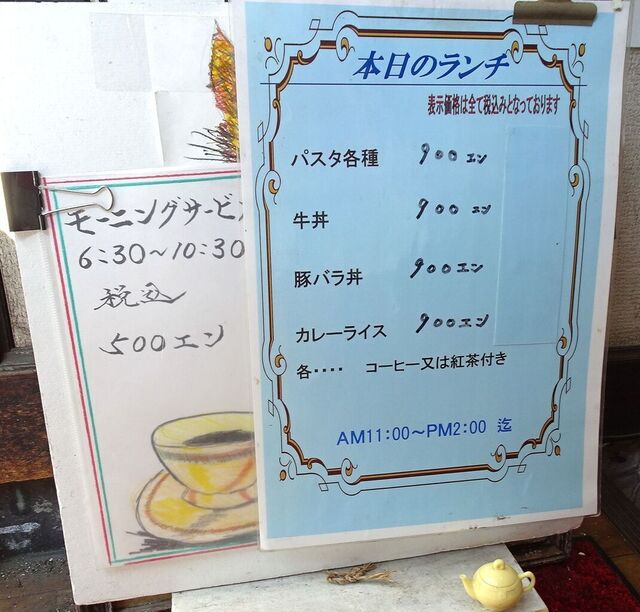 本日のランチ
表示価格は全て税込みとなっております
パスタ各種 900エン
牛丼 900エン
豚バラ丼 900エン
カレーライス 900エン
各‥‥ コーヒー又は紅茶付き
AM11:00～PM2:00 迄
モーニングサービ
6:30～10:30
税込
500エン